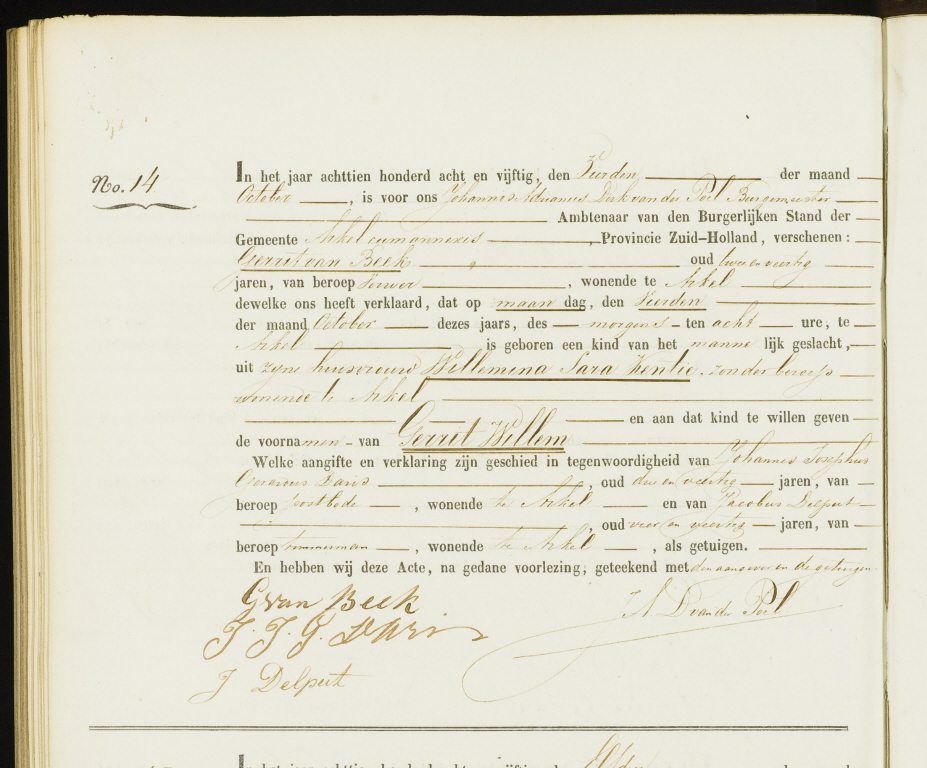 No. 14
In het jaar achttien honderd acht en vijftig, den Vierden der maand
October, is voor ons Johannis Adrianus Dirk van der Poel Burgemeester
Ambtenaar van den Burgerlijken Stand der
Gemeente Arkel cum annexis, Provincie Zuid-Holland, verschenen:
Gerrit van Beek oud twee en veertig
jaren, van beroep Verwer, wonende te Arkel
dewelke ons heeft verklaard, dat op maan dag, den Vierden
der maand October dezes jaars, des morgens ten acht ure, te
Arkel is geboren een kind van het manne lijk geslacht,
uit zyne huisvrouw Willemina Sara Kentie, zonder beroep
wonende te Arkel
en aan dat kind te willen geven
de voornamen van Gerrit Willem
Welke aangifte en verklaring zijn geschied in tegenwoordigheid van Johannes Josephus
Gerardus Daris, oud drie en veertig jaren, van
beroep postbode, wonende te Arkel en van Jacobus Delput
, oud vier en veertig jaren, van
beroep timmerman, wonende te Arkel, als getuigen.
En hebben wij deze Acte, na gedane voorlezing, geteekend met den aangever en de getuigen.
G van Beek
J A D van der Poel
J. J. G. Daris
J Delput